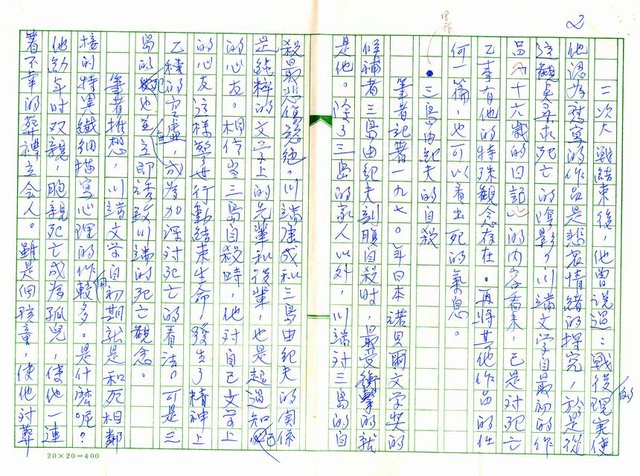 2
二次大戰結束後，他曾說過：戰後現實使
他認為應寫的作品是悲哀情緒的探究，於是從
這觀點尋求死亡的陰影，川端文學自最初的作
品《十六歲的日記》的內容看來，已是對死亡
乙事有他的特殊觀念存在。再將其他作品的任
何一篇，也可以看出死的氣息。
●三島由紀夫的自殺
筆者記著一九七〇年日本諾貝爾文學獎的
候補者三島由紀夫剖腹自殺時，最受衝擊的就
是他。除了三島的家人以外，川端對三島的自
殺最悲傷 絕。川端康成和三島由紀夫的關係
是純粹的文學上的先輩和後輩，也是超過知己
的心友。相信當三島自殺時，他對自己文學上
的心友這樣毅然行動結束生命，發生了精神上
乙種的空虛，或為加深對死亡的看法。可是三
島的死也並立即誘致川端的死亡觀念。
筆者推想，川端文學自初期就是和死相鄰
接的特異纖細描寫心理的作較多。是什麼呢？
他幼年時双親，胞親死亡成為孤兒，使他一連
著不幸的葬禮立会人。雖是個孩童，使他對葬
20×20=400